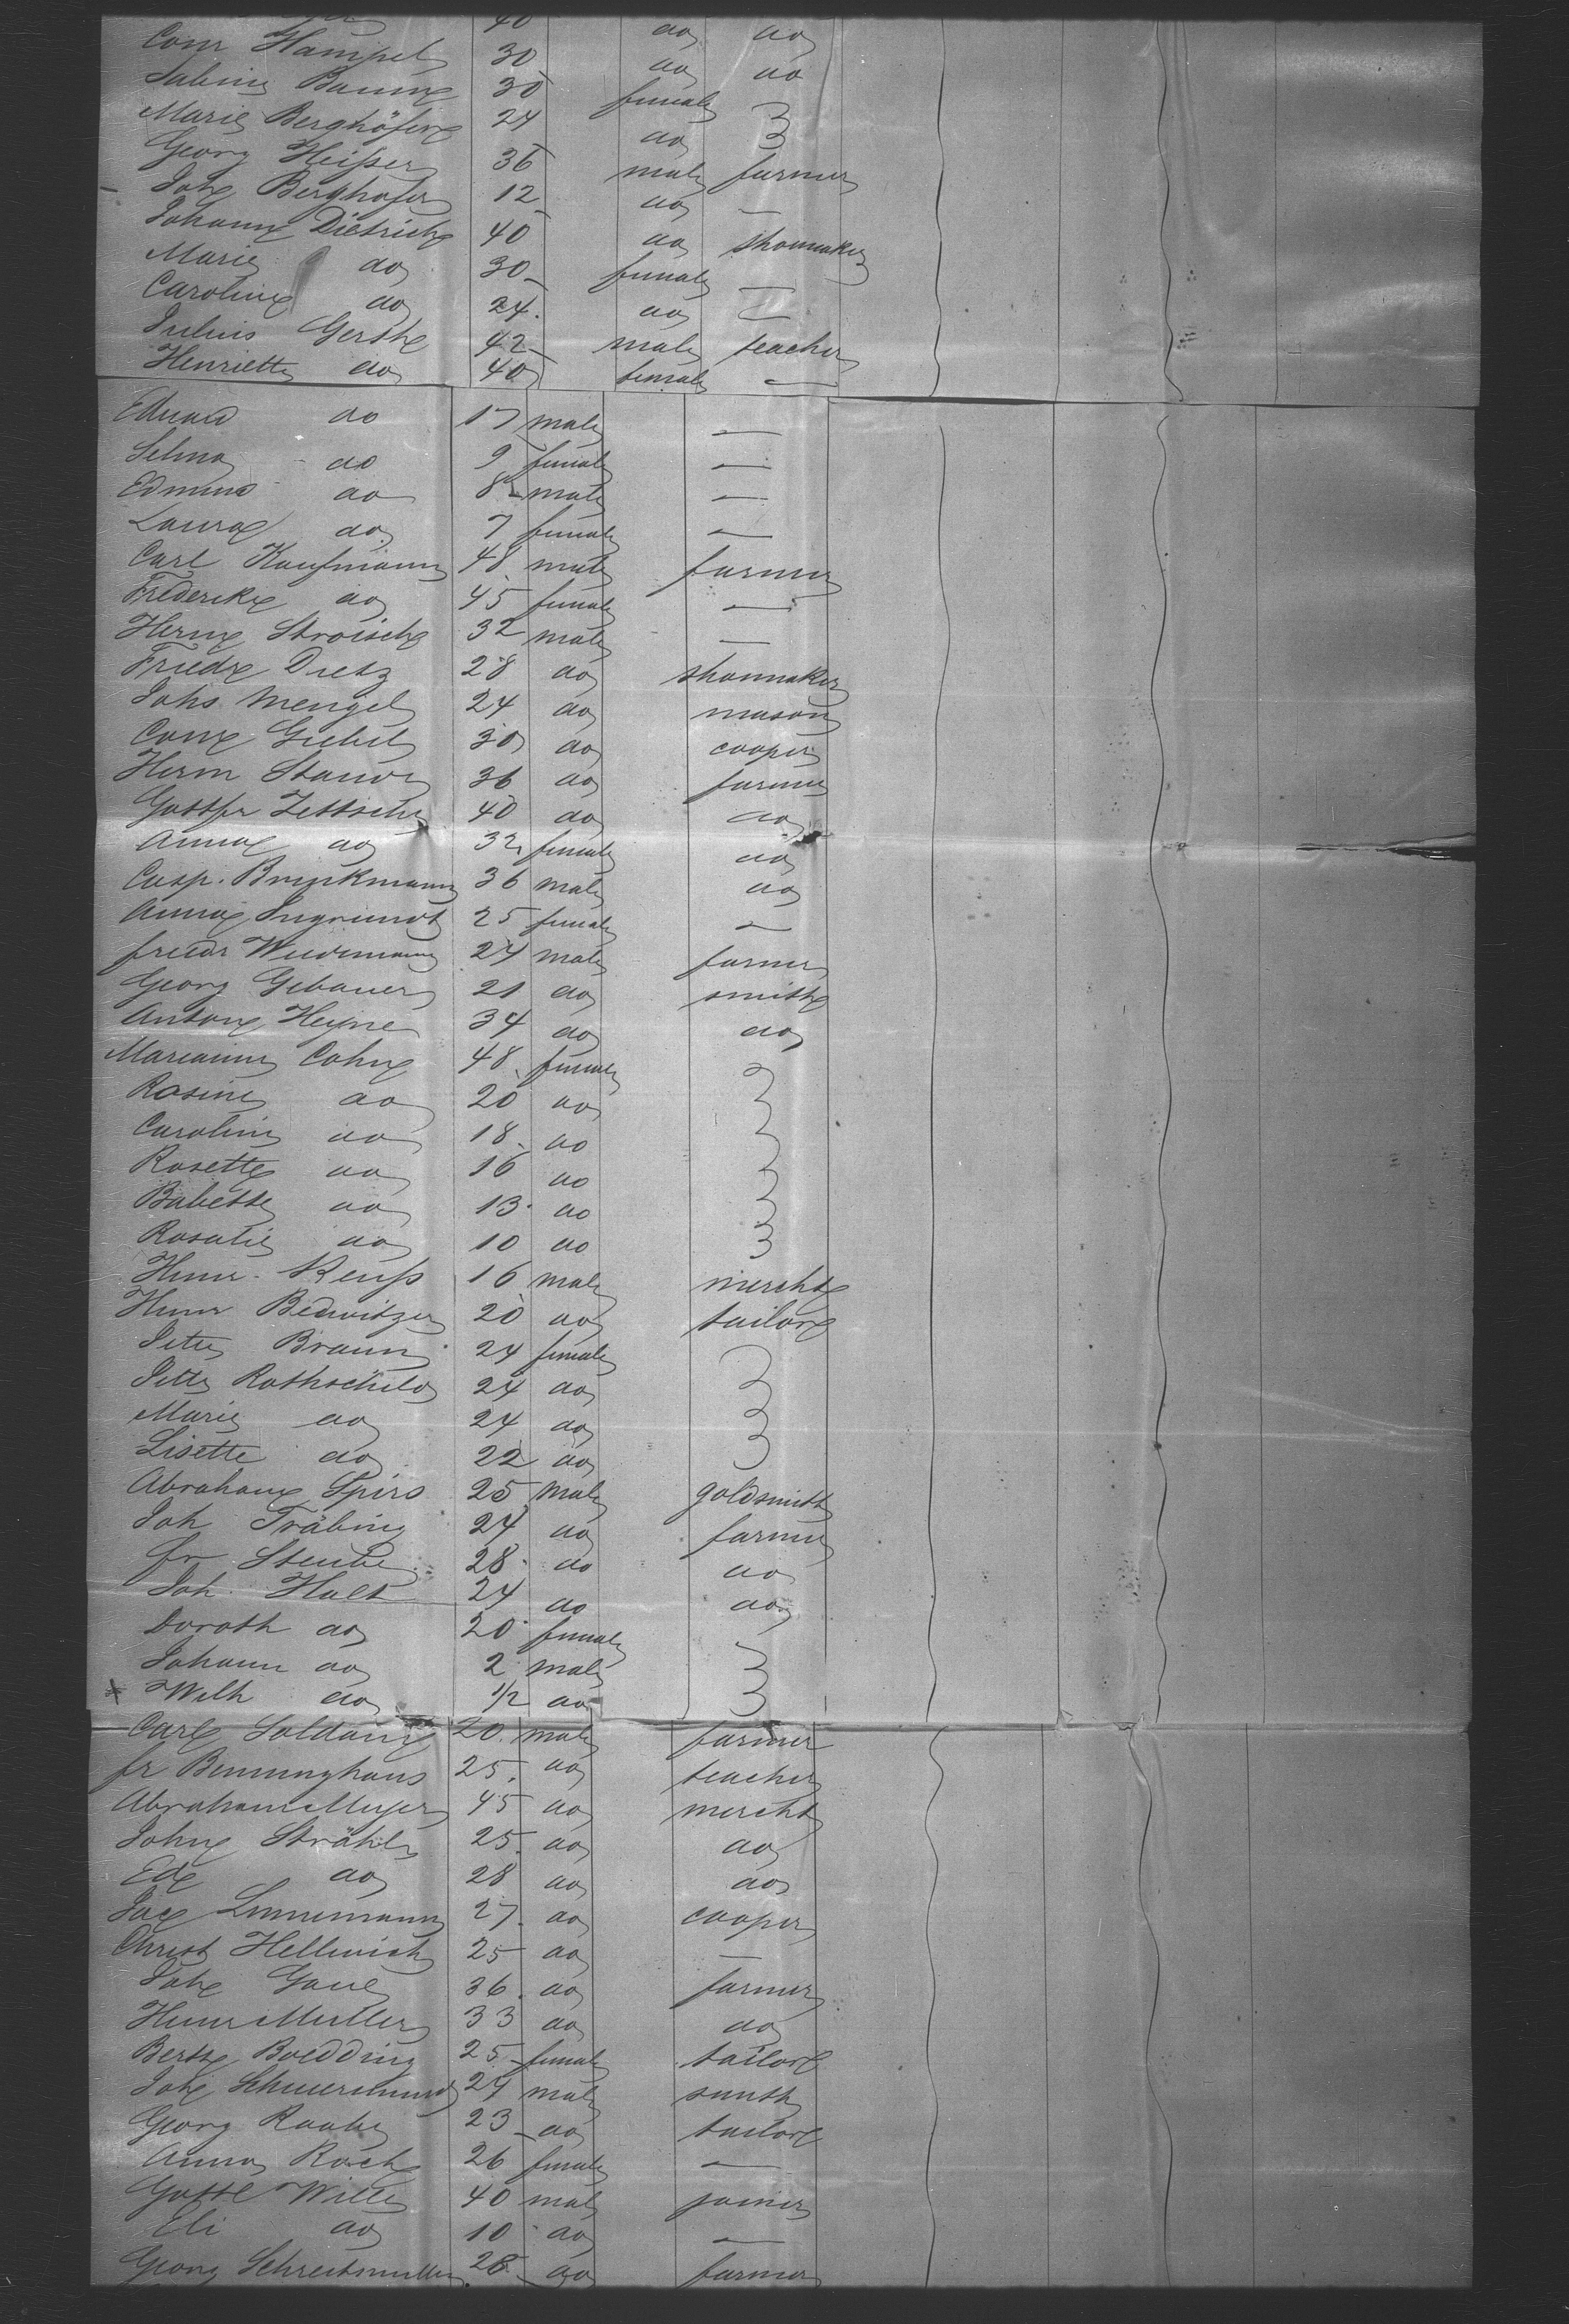 40 do do
Conr Hampel 30 do do
Sabine Baum 30 female
Marie Berghöfer 24 do
Georg Heißer 36 male farmer
Joh Berghöfer 12 do —
Johann Dietrich 40 do shoemaker
Marie do 30 female —
Caroline do 24 do —
Julius Gerth 42 male teacher
Henriette do 40 female —
Eduard do 17 male —
Selma do 9 female —
Edmund do 8 male —
Laura do 7 female —
Carl Kaufmann 48 male farmer
Frederike do 45 female —
Herm Stroisch 32 male —
Friedr Dietz 28 do shoemaker
Johs Mengel 24 do mason
Conr Giebel 30 do cooper
Herm Staude 36 do farmer
Gottfr Zettsche 40 do do
Anna do 32 female do
Casp. Brinkmann 36 male do
Anna Ingrundt 25 female —
friedr Wiedemann 24 male farmer
Georg Gebauer 21 do smith
Anton Heyne 34 do do
Marianne Cohn 48 female
Rosine do 20 do
Caroline do 18 do
Rosette do 16 do
Babette do 13 do
Rosalie do 10 do
Heinr. Reuß 16 male mercht
Heinr Bedwitzer 20 do tailor
Jette Braun 24 female
Jette Rothschild 24 do
Marie do 24 do
Lisette do 22 do
Abraham Spiro 25 male goldsmith
Joh Träbing 24 do farmer
fr Steube 28 do do
Joh. Hult 24 do do
Doroth do 20 female
Johann do 2 male
Wilh do 1/2 do
Carl Soldan 20 male farmer
fr Benninghaus 25 do teacher
Abraham Meyer 45 do mercht
John Strähle 25 do do
Ed do 28 do do
Jac Linnemann 27 do cooper
Christ Hellwich 25 do —
Joh Gaul 36 do farmer
Heinr Muller 33 do do
Berth Boedding 25 female tailor
Joh Scheuermund 24 male smith
Georg Raabe 23 do tailor
Anna Koch 26 female —
Gottl Wille 40 male joiner
Eli do 10 do —
Georg Schreitmuller 28 do farmer